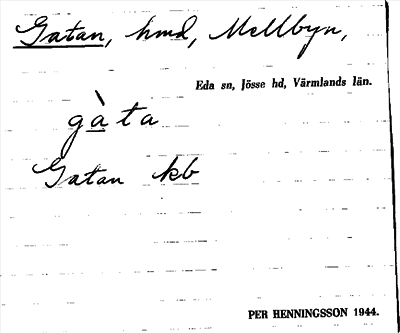 Gatan, hmd, Mellbyn,
Eda sn, Jösse hd, Värmlands län.
gàta
Gatan kb
PER HENNINGSSON 1944.